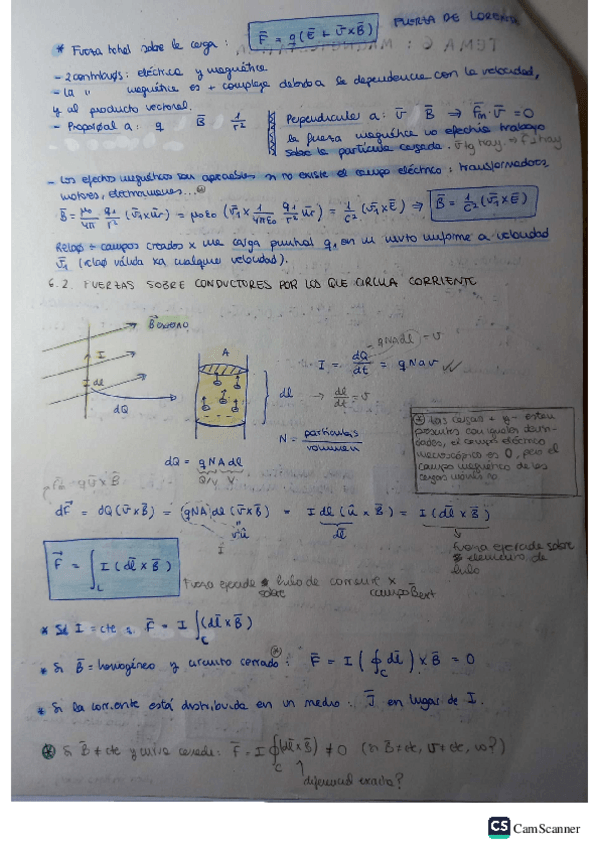 * Fuerza total sobre la carga: F̄ = q(Ē + v̄×B̄) FUERZA DE LORENTZ
- 2 contribuºs: eléctrica y magnética
- La " magnética es + compleja debido a la dependencia con la velocidad,
y al producto vectorial.
- Proporºal a: q B̄ 1/r²
Perpendicular a: v̄ B̄ ⇒ F̄m·v̄ = 0
la fuerza magnética no efectúa trabajo
sobre la partícula cargada.
- Los efectos magnéticos son apreciables si no existe el campo eléctrico: transformadores
motores, electroimanes...
B̄ = μ₀/4π q₁/r² (v̄₁×ūr) = μ₀ε₀ (v̄₁ × 1/4πε₀ q₁/r² ūr) = 1/c² (v̄₁×Ē) ⇒ B̄ = 1/c² (v̄₁×Ē)
Relaº ÷ campos creados x una carga puntual q₁ en un mvto uniforme a velocidad
v̄₁ (relaº válida xa cualquier velocidad).
6.2. FUERZAS SOBRE CONDUCTORES POR LOS QUE CIRCULA CORRIENTE
B̄ externo
I
I dl̄
dQ
A
dl
qNAdl = v
I = dQ/dt = qNAv
→ dl/dt = v
N = partículas/volumen
dQ = qNAdl
Q/V V
* Las cargas + y - están
presentes con iguales densi-
dades, el campo eléctrico
macroscópico es 0, pero el
campo magnético de las
cargas móviles no
dF̄ = dQ(v̄×B̄) = qNA dl(v̄×B̄) = I dl(û×B̄) = I(dl̄×B̄)
v·û
I
dl̄
fuerza ejercida sobre
elemento de
hilo
F̄ = ∫L I(dl̄×B̄)
Fuerza ejercida sobre hilo de corriente x campo B̄ext
* Si I = cte: F̄ = I ∫C(dl̄×B̄)
* Si B̄ = homogéneo y circuito cerrado: F̄ = I(∮C dl̄)×B̄ = 0
* Si la corriente está distribuida en un medio: J̄ en lugar de I.
* Si B̄ ≠ cte y curva cerrada: F̄ = I∮C(dl̄×B̄) ≠ 0 (si B̄ = cte, v = cte, no?)
diferencial exacta?
CS CamScanner